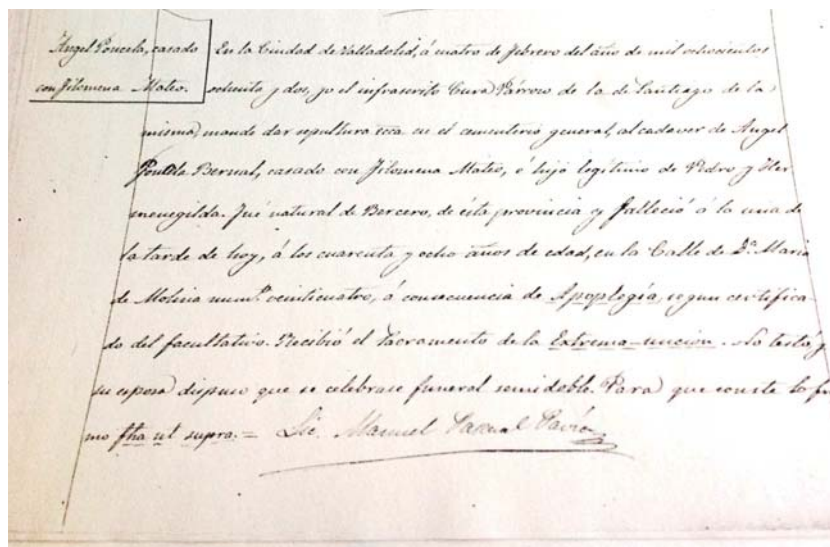 Angel Poncela, casado
con Filomena Mateo.
En la Ciudad de Valladolid, á cuatro de febrero del año de mil ochocientos
ochenta y dos, yo el infrascrito Cura Párroco de la de Santiago de la
misma, mandé dar sepultura ecca. en el cementerio general, al cadaver de Angel
Poncela Bernal, casado con Filomena Mateo, é hijo legítimo de Pedro y Her-
menegilda. Fué natural de Bercero, de ésta provincia y falleció á la una de
la tarde de hoy, á los cuarenta y ocho años de edad, en la Calle de Dª. Maria
de Molina numº. veinticuatro, á consecuencia de Apoplegía, segun certifica-
do del facultativo. Recibió el Sacramento de la Extrema-uncion. No testó y
su esposa dispuso que se celebrase funeral semidoble. Para que conste lo fir-
mo fha ut supra. = Lic. Manuel Pascual Pavía